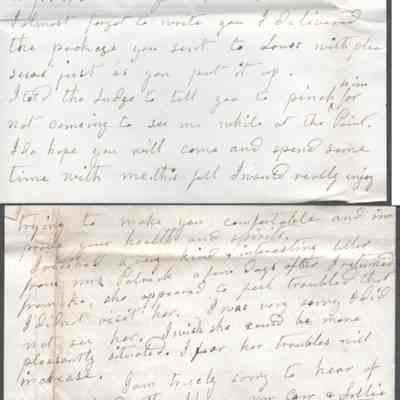 I almost forgot to write you I delivered
the package you sent to Lower with plea
sure just as you put it up.
I told the Judge to tell you to pinch him for
not comeing to see me while at the Point.
I do hope you will come and spend some
time with me this fall I would really enjoy
trying to make you comfortable and im
prove your health and spirits.
I received a very kind & interesting letter
from Mrs a few days after I returned
from she appeared to feel troubled that
I did not visit her. I was very sorry I did
not see her. I wish she could be more
pleasantly situated. I fear her troubles will
increase. I am truely sorry to hear of